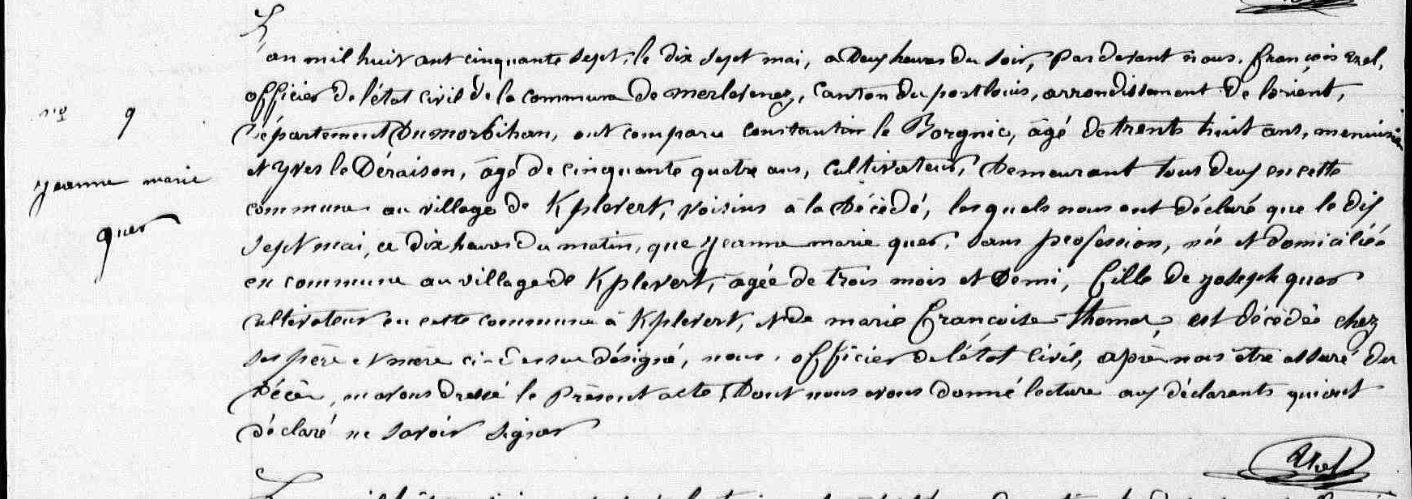 L'an mil huit cent cinquante sept, le dix sept mai, a Deux heures Du Soir, par devant nous. françois Exel,
officier De l'état civil de la commune De merlevenez, Canton Du port louis, arrondissement De lorient,
n° 9
Département Du morbihan, ont comparu constantin le Borgnic, âgé De trente huit ans, menuisier
et yves le Déraison, âgé de cinquante quatre ans, Cultivateur, Demeurant tous deux en cette
yeanne marie
commune au village de Kplevert, voisins à la Décédé, lesquels nous ont déclaré que le dix
quer
sept mai, a dix heures du matin, que yeanne marie quer, sans profession, née et domiciliée
en commune au village de Kplevert, âgée de trois mois et Demi, fille de yoseph quer
cultivateur en cette commune à Kplevert, et de marie françoise Thomas, est décédée chez
ses père et mère ci-Dessus désigné, nous. officier de l'état civil, après nous être assuré du
Décès, en avons dressé le présent acte Dont nous avons donné lecture aux déclarants qui ont
déclaré ne savoir signer